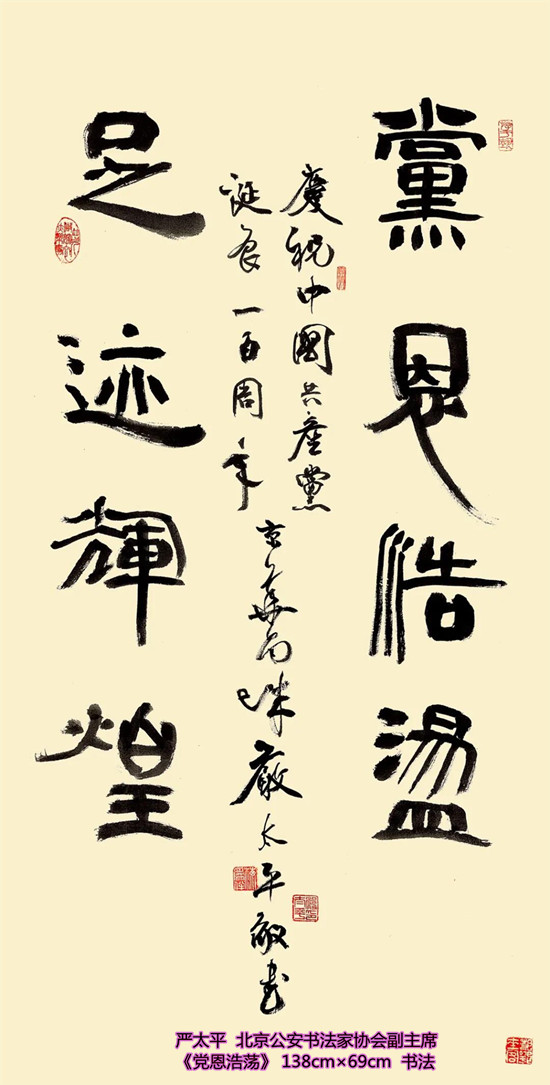 黨恩浩蕩
足迹輝煌
慶祝中國共產黨
誕辰一百周年
嚴太平敬書
严太平 北京公安书法家协会副主席
《党恩浩荡》 138cm×69cm 书法